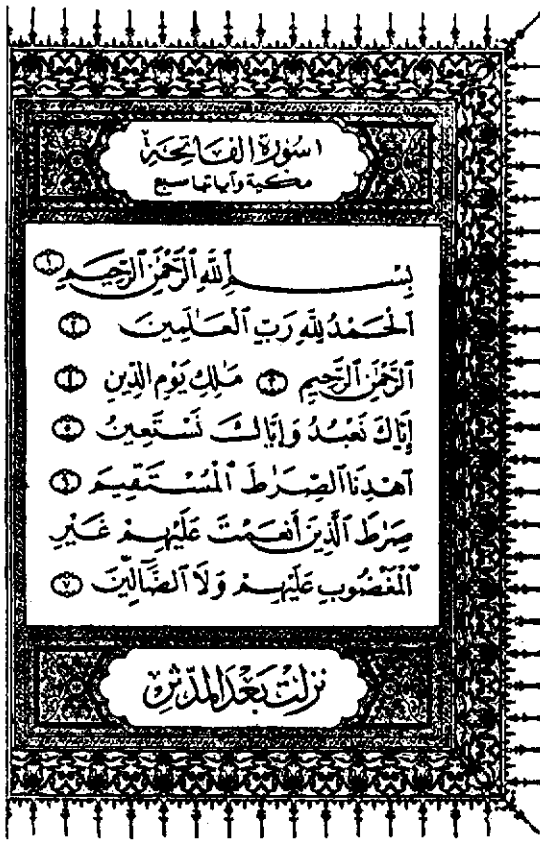 ١ سُورَةُ الفَاتِحَةِ
مكية وآياتها سبع
بِسْمِ ٱللَّهِ ٱلرَّحْمَٰنِ ٱلرَّحِيمِ ١
ٱلْحَمْدُ لِلَّهِ رَبِّ ٱلْعَٰلَمِينَ ٢
ٱلرَّحْمَٰنِ ٱلرَّحِيمِ ٣ مَٰلِكِ يَوْمِ ٱلدِّينِ ٤
إِيَّاكَ نَعْبُدُ وَإِيَّاكَ نَسْتَعِينُ ٥
ٱهْدِنَا ٱلصِّرَٰطَ ٱلْمُسْتَقِيمَ ٦
صِرَٰطَ ٱلَّذِينَ أَنْعَمْتَ عَلَيْهِمْ غَيْرِ
ٱلْمَغْضُوبِ عَلَيْهِمْ وَلَا ٱلضَّآلِّينَ ٧
نَزَلَتْ بَعْدَ المدَّثِّرِ